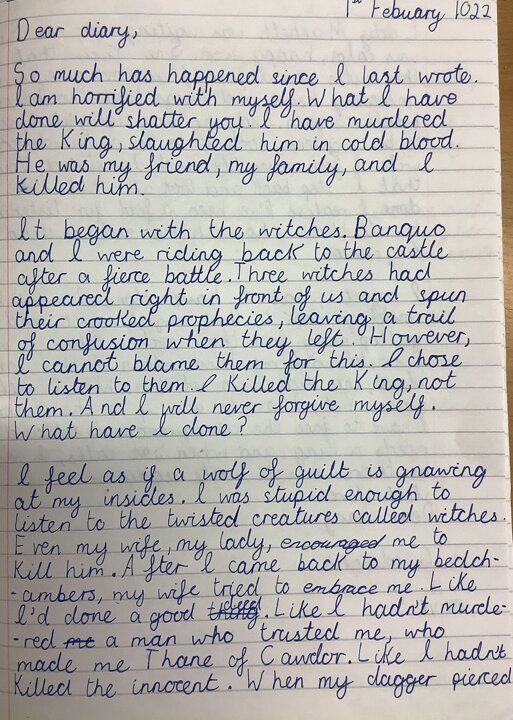 1st Febuary 1022
Dear diary,
So much has happened since I last wrote.
I am horrified with myself. What I have
done will shatter you. I have murdered
the King, slaughted him in cold blood.
He was my friend, my family, and I
killed him.
It began with the witches. Banquo
and I were riding back to the castle
after a fierce battle. Three witches had
appeared right in front of us and spun
their crooked prophecies, leaving a trail
of confusion when they left. However,
I cannot blame them for this. I chose
to listen to them. I killed the King, not
them. And I will never forgive myself.
What have I done?
I feel as if a wolf of guilt is gnawing
at my insides. I was stupid enough to
listen to the twisted creatures called witches.
Even my wife, my lady, encouraged me to
kill him. After I came back to my bedch-
-ambers, my wife tried to embrace me. Like
I'd done a good. Like I hadn't murde-
-red a man who trusted me, who
made me Thane of Cawdor. Like I hadn't
killed the innocent. When my dagger pierced